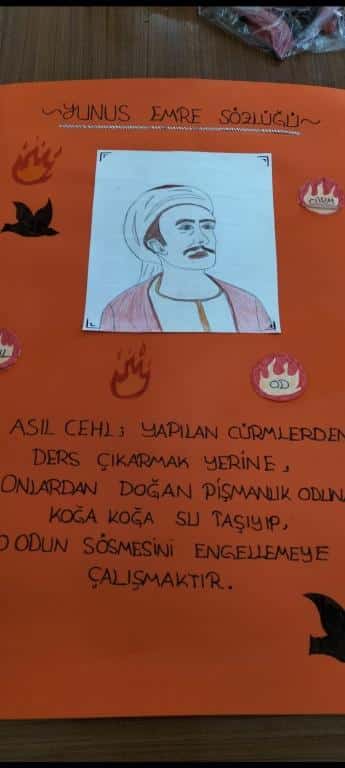 ~YUNUS EMRE SÖZLÜĞÜ~
CÜRM
OD
ASIL CEHL; YAPILAN CÜRMLERDEN
DERS ÇIKARMAK YERİNE,
ONLARDAN DOĞAN PİŞMANLIK ODUNA
KOĞA KOĞA SU TAŞIYIP,
O ODUN SÖSMESİNİ ENGELLEMEYE
ÇALIŞMAKTIR.